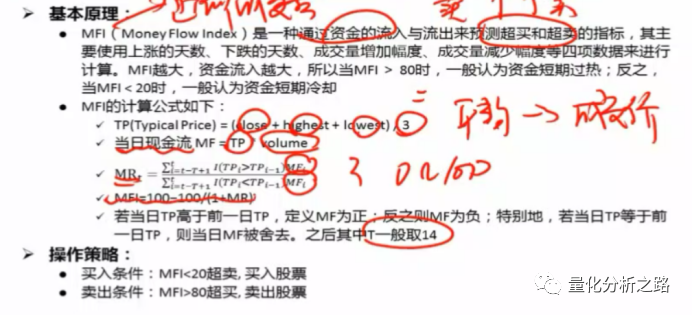 ➢ 基本原理：
● MFI（MoneyFlow Index）是一种通过资金的流入与流出来预测超买和超卖的指标，其主
要使用上涨的天数、下跌的天数、成交量增加幅度、成交量减少幅度等四项数据来进行
计算。MFI越大，资金流入越大，所以当MFI > 80时，一般认为资金短期过热；反之，
当MFI < 20时，一般认为资金短期冷却
● MFI的计算公式如下：
✓ TP(Typical Price) = (close + highest + lowest) / 3
✓ 当日现金流 MF = TP * volume
✓ MR_t = \frac{\sum_{i=t-T+1}^{t} I(TP_i>TP_{i-1})MF_i}{\sum_{i=t-T+1}^{t} I(TP_i<TP_{i-1})MF_i}
0 100
✓ MFI=100−100/(1+MR)
✓ 若当日TP高于前一日TP，定义MF为正；反之则MF为负；特别地，若当日TP等于前
一日TP，则当日MF被舍去。之后其中T一般取14
➢ 操作策略：
● 买入条件：MFI<20超卖, 买入股票
● 卖出条件：MFI>80超买, 卖出股票
量化分析之路